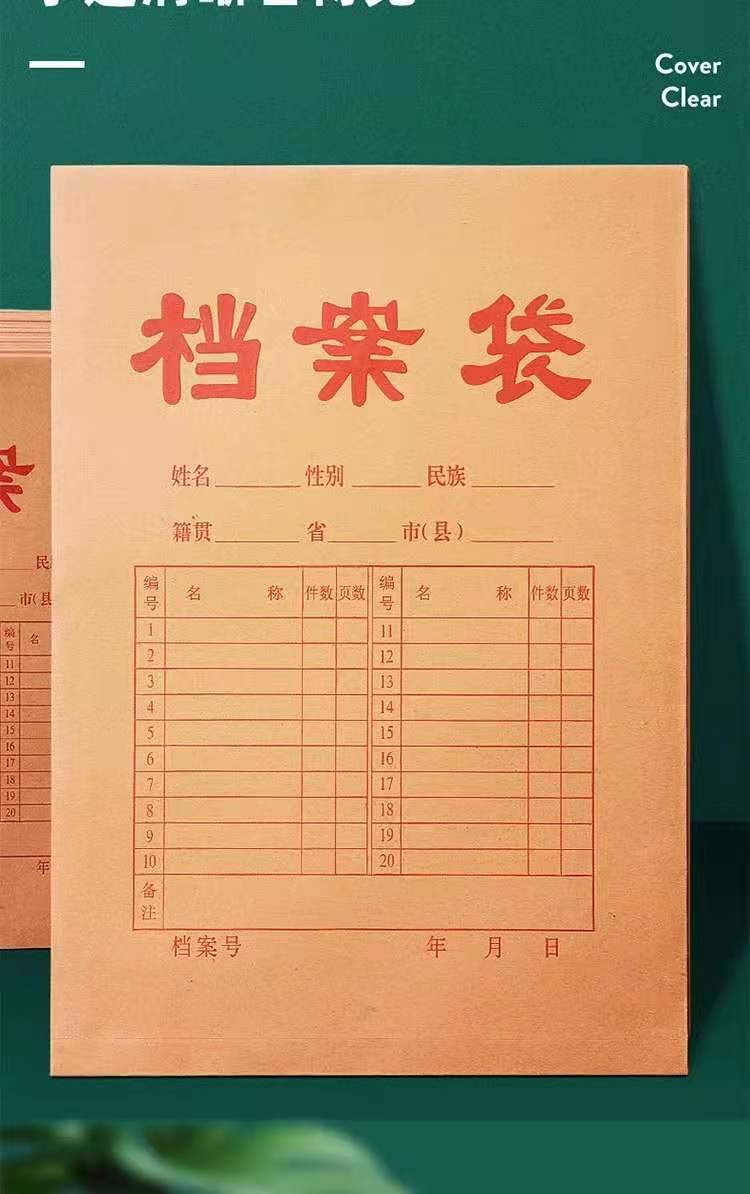 Cover
Clear
档案袋
姓名 性别 民族
籍贯 省 市(县)
编号 名 称 件数 页数 编号 名 称 件数 页数
1 11
2 12
3 13
4 14
5 15
6 16
7 17
8 18
9 19
10 20
备注
档案号 年 月 日
案
民
市(县
编号 名
11
12
13
14
15
16
17
18
19
20
年